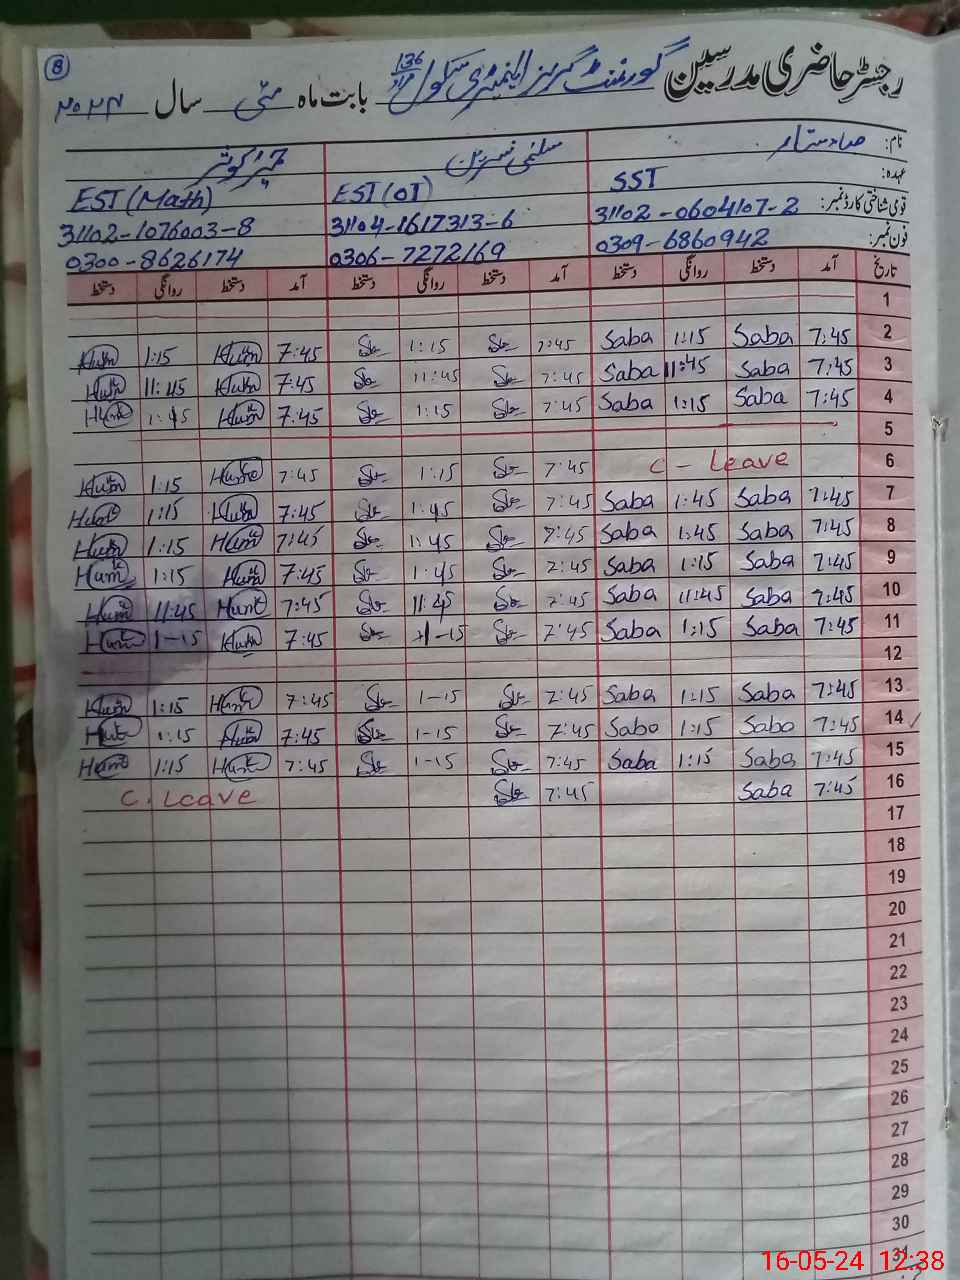 8
رجسٹر حاضری مدرسین گورنمنٹ گرلز ایلیمنٹری سکول 136 بابت ماہ مئی سال ۲۰۲۴
نام: صباء ستار سلمیٰ نسرین کوثر
عہدہ: SST EST (OT) EST (Math)
قومی شناختی کارڈ نمبر: 31102-0604107-2 31104-1617313-6 31102-1076003-8
فون نمبر: 0309-6860942 0306-7272169 0300-8626174
تاریخ آمد دستخط روانگی دستخط آمد دستخط روانگی دستخط آمد دستخط روانگی دستخط
1
2 7:45 Saba 1:15 Saba 7:45 1:15 7:45 1:15
3 7:45 Saba 11:45 Saba 7:45 11:45 7:45 11:45
4 7:45 Saba 1:15 Saba 7:45 1:15 7:45 1:45
5
6 C - Leave 7:45 1:15 7:45 1:15
7 7:45 Saba 1:45 Saba 7:45 1:45 7:45 1:15
8 7:45 Saba 1:45 Saba 7:45 1:45 7:45 1:15
9 7:45 Saba 1:15 Saba 7:45 1:45 7:45 1:15
10 7:45 Saba 11:45 Saba 7:45 11:45 7:45 11:45
11 7:45 Saba 1:15 Saba 7:45 1-15 7:45 1-15
12
13 7:45 Saba 1:15 Saba 7:45 1-15 7:45 1:15
14 7:45 Saba 1:15 Saba 7:45 1-15 7:45 1:15
15 7:45 Saba 1:15 Saba 7:45 1-15 7:45 1:15
16 7:45 Saba 7:45 C. Leave
17
18
19
20
21
22
23
24
25
26
27
28
29
30
31
16-05-24 12:38